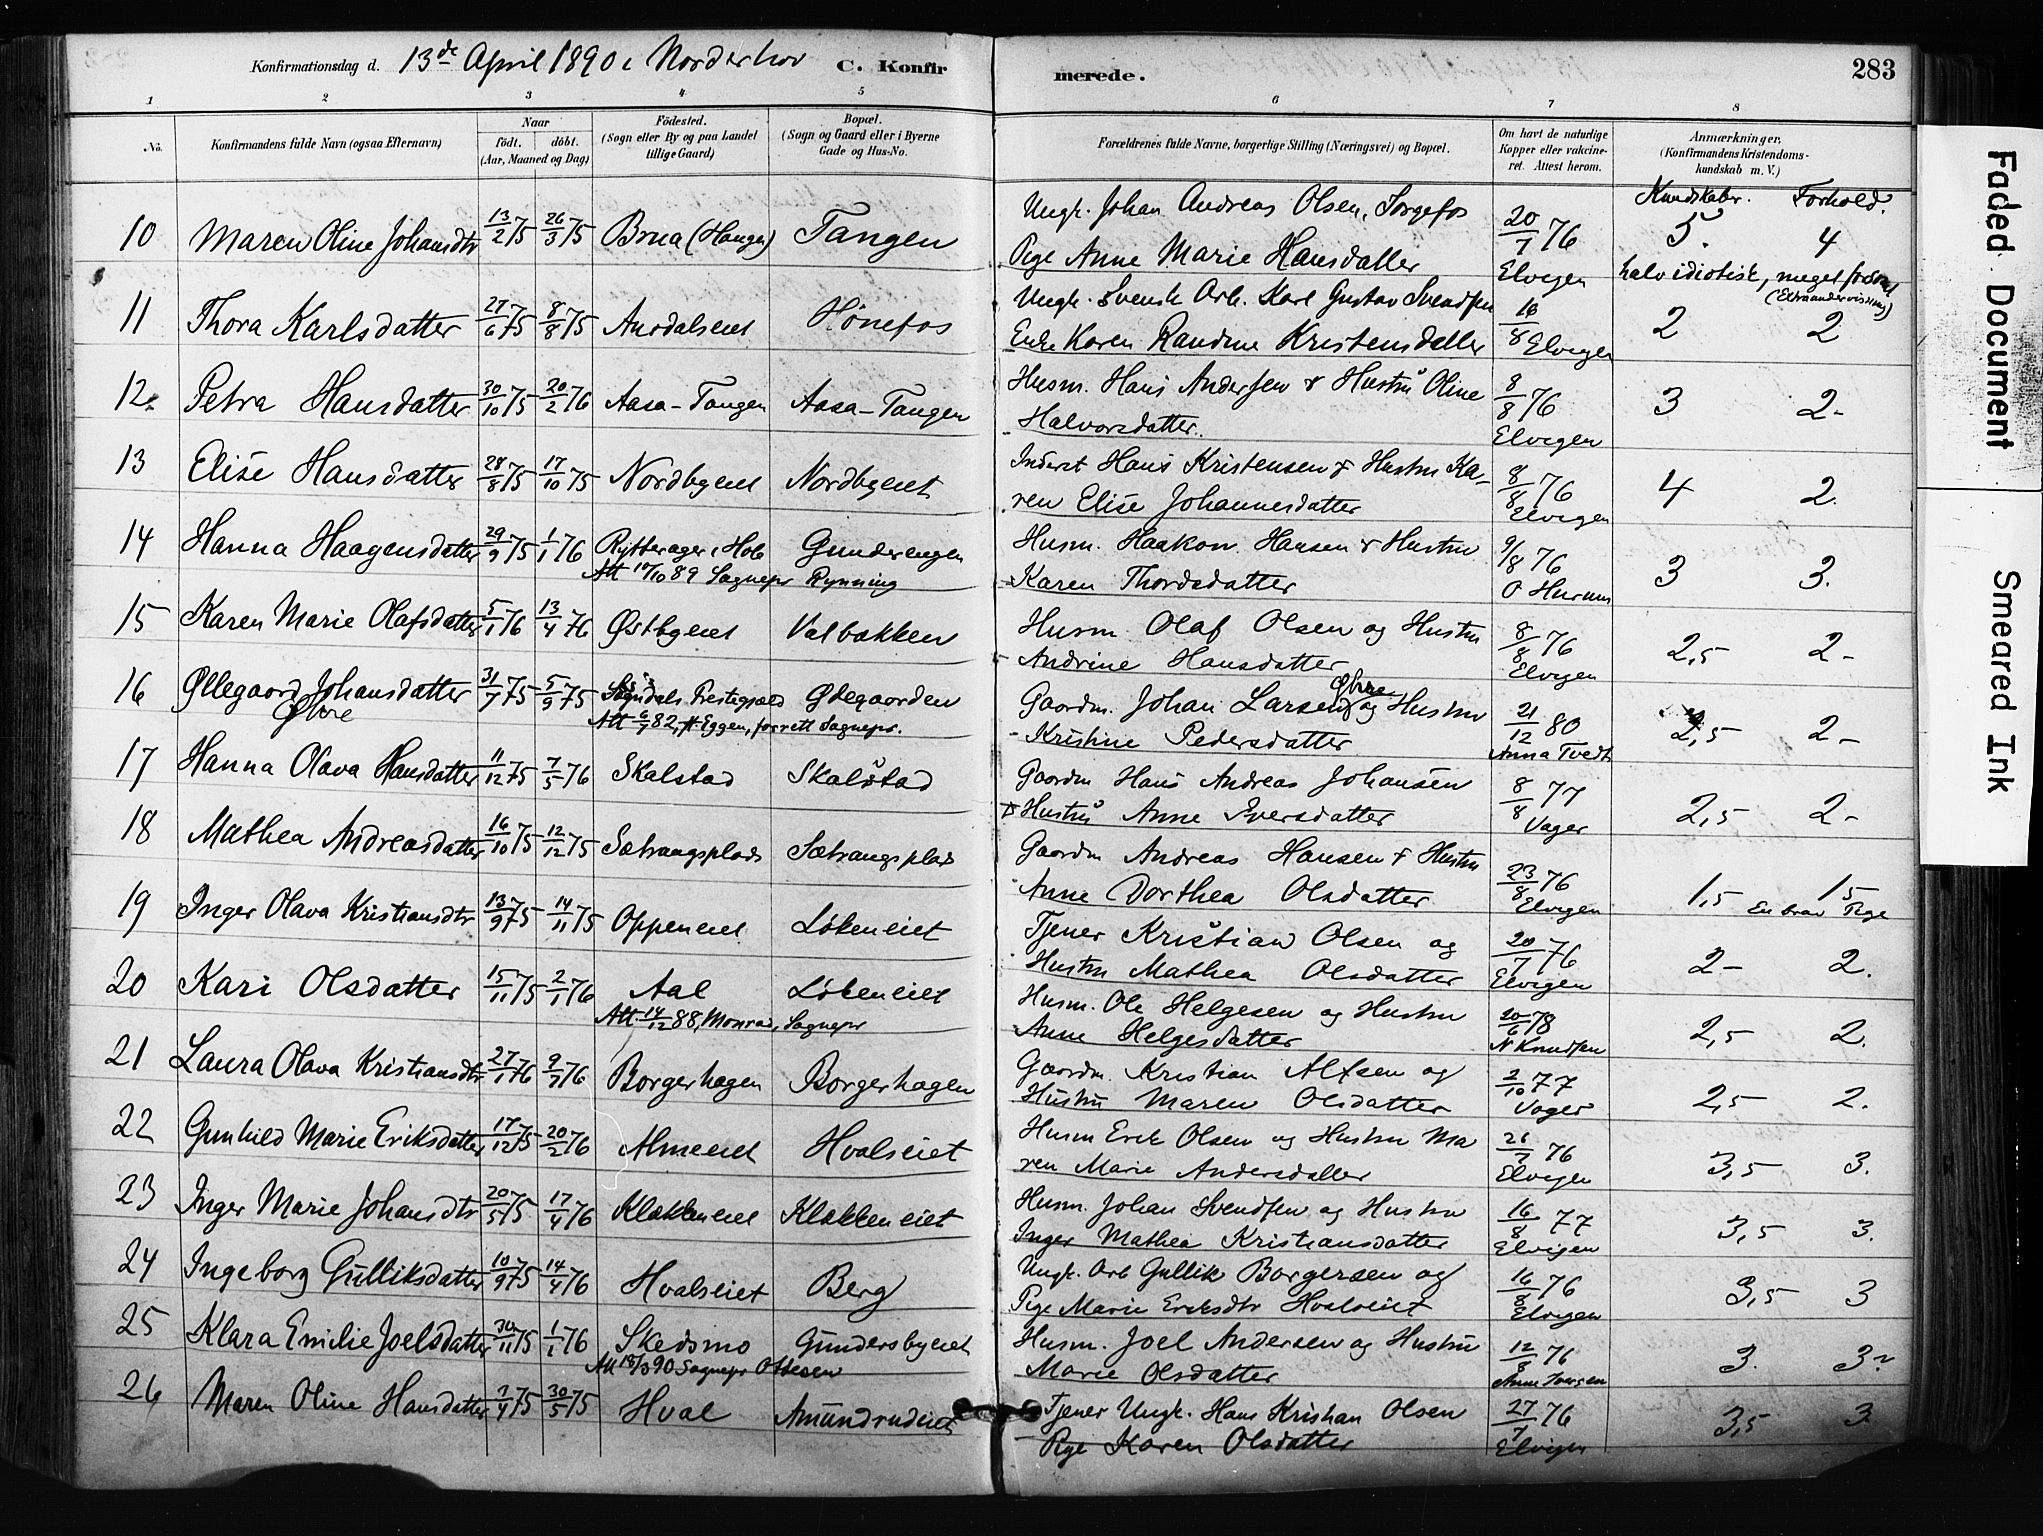 Konfirmationsdag d. 13de April 1890 i Norderhov C. Konfirmerede. 283
1 2 3 4 5 6 7 8
No. Konfirmandens fulde Navn (ogsaa Efternavn) Naar født. døbt. (Aar, Maaned og Dag) Fødested. (Sogn eller By og paa Landet tillige Gaard) Bopæl. (Sogn og Gaard eller i Byerne Gade og Hus-No. Forældrenes fulde Navne, borgerlige Stilling (Næringsvei) og Bopæl. Om havt de naturlige Kopper eller vakcineret. Attest herom. Anmærkninger. (Konfirmandens Kristendomskundskab m. V.)
Kundskaber. Forhold.
10 Maren Oline Johansdtr 13/2 75 26/3 75 Brua (Haugen) Tangen Ungk. Johan Andreas Olsen, Sorgefos 20/7 76 5. 4
Pige Anne Marie Hansdatter Elvigen halv idiotisk, meget
(Extraundervisning)
11 Thora Karlsdatter 27/6 75 8/8 75 Aurdalseiet Hønefos Ungk. Svensk Arb. Karl Gustav Svendsen 16/8 2 2
Enke Karen Randine Kristensdatter Elvigen
12. Petra Hansdatter 30/10 75 20/2 76 Aasa-Tangen Aasa-Tangen Husm. Hans Andersen & Hustru Oline 8/8 76 3 2-
Halvorsdatter. Elvigen
13 Elise Hansdatter 28/8 75 17/10 75 Nordbyeiet Nordbyeiet Inderst Hans Kristensen & Hustru Ka- 8/8 76 4 2.
ren Elise Johannesdatter Elvigen
14 Hanna Haagensdatter 29/9 75 1/1 76 Rytterager i Hole Gunderengen Husm. Haakon Hansen & Hustru 9/8 76 3 3.
Att 10/10 89 Sognepr Rynning Karen Thordsdatter O Hurum
15 Karen Marie Olafsdatter 5/1 76 13/4 76 Østbyeiet Valbakken Husm. Olaf Olsen og Hustru 8/8 76 2,5 2-
Andrine Hansdatter Elvigen
16 Øllegaard Johansdatter 31/7 75 5/9 75 Sogndals Prestegjæld Ødegaarden Gaardm. Johan Larsen Øvre og Hustru 21/12 80 2,5 2-
Øvre Att 6/7 82, Eggen, forrett Sognepr. Kristine Pedersdatter Anna Tvedt
17 Hanna Olava Hansdatter 11/12 75 7/5 76 Skalstad Skalstad Gaardm Hans Andreas Johansen 8/8 77 2,5 2-
& Hustru Anne Iversdatter Vager
18 Mathea Andreasdatter 16/10 75 12/12 75 Sætrangsplads Sætrangsplads Gaardm Andreas Hansen & Hustru 23/8 76 1,5 1,5
Anne Dorthea Olsdatter Elvigen En brav Pige
19 Inger Olava Kristiansdtr 13/9 75 14/11 75 Oppeneiet Løkeneiet Tjener Kristian Olsen og 20/7 76 2- 2.
Hustru Mathea Olsdatter Elvigen
20 Kari Olsdatter 15/11 75 2/1 76 Aal Løkeneiet Husm. Ole Helgesen og Hustru 20/6 78 2,5 2.
Att 14/12 88, Monrad, Sognepr Anne Helgesdatter N Knudsen
21 Laura Olava Kristiansdtr 27/1 76 9/7 76 Borgerhagen Borgerhagen Gaardm. Kristian Alfsen og 2/10 77 2,5 2.
Hustru Maren Olsdatter Vager
22 Gunhild Marie Eriksdatter 17/12 75 20/2 76 Almeeiet Hvalseiet Husm Erik Olsen og Hustru Ma 26/7 76 3,5 3.
ren Marie Andersdatter Elvigen
23 Inger Marie Johansdtr 20/5 75 17/4 76 Klækkeneiet Klækkeneiet Husm. Johan Svendsen og Hustru 16/8 77 3,5 3.
Inger Mathea Kristiansdatter Elvigen
24 Ingeborg Gulliksdatter 10/9 75 14/4 76 Hvalseiet Berg Ungk. Arb Gullik Borgersen og 16/8 76 3,5 3
Pige Marie Eriksdtr Hvalseiet Elvigen
25 Klara Emilie Joelsdatter 30/11 75 1/1 76 Skedsmo Gundersbyeiet Husm. Joel Andersen og Hustru 12/8 76 3. 3-
Att 18/3 90 Sognepr Ottesen Marie Olsdatter Anne Iversen
26 Maren Oline Hansdatter 7/4 75 30/5 75 Hval Amundrudeiet Tjener Ungk. Hans Kristian Olsen 27/7 76 3,5 3.
Pige Karen Olsdatter Elvigen
Faded Document
Smeared Ink